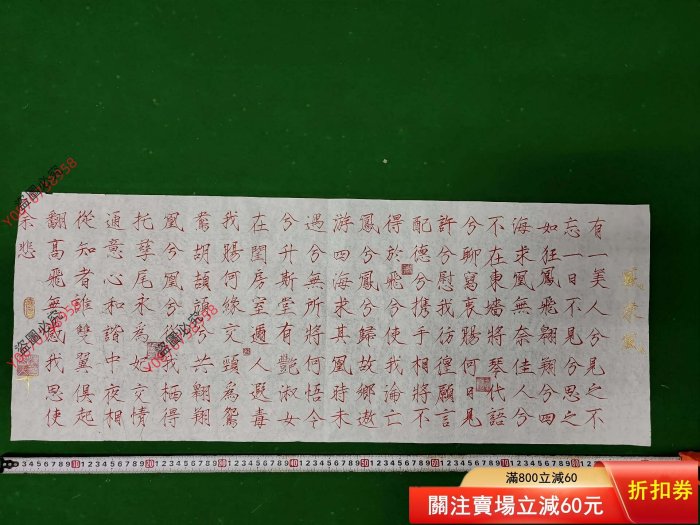 鳳求凰
有一美人兮見之不
忘一日不見兮思之
如狂鳳飛翱翔兮四
海求凰無奈佳人兮
不在東牆將琴代語
兮聊寫衷腸何日見
許兮慰我彷徨願言
配德兮携手相將不
得於飛兮使我淪亡
鳳兮鳳兮歸故鄉遨
游四海求其凰時未
遇兮無所將何悟今
兮升斯堂有艷淑女
在閨房室邇人遐毒
我腸何緣交頸為鴛
鴦胡頡頏兮共翱翔
凰兮凰兮從我栖得
托孳尾永為妃交情
通意心和諧中夜相
從知者誰雙翼俱起
翻高飛無感我思使
余悲
盜圖必究
滿800立減60
關注賣場立減60元
折扣券